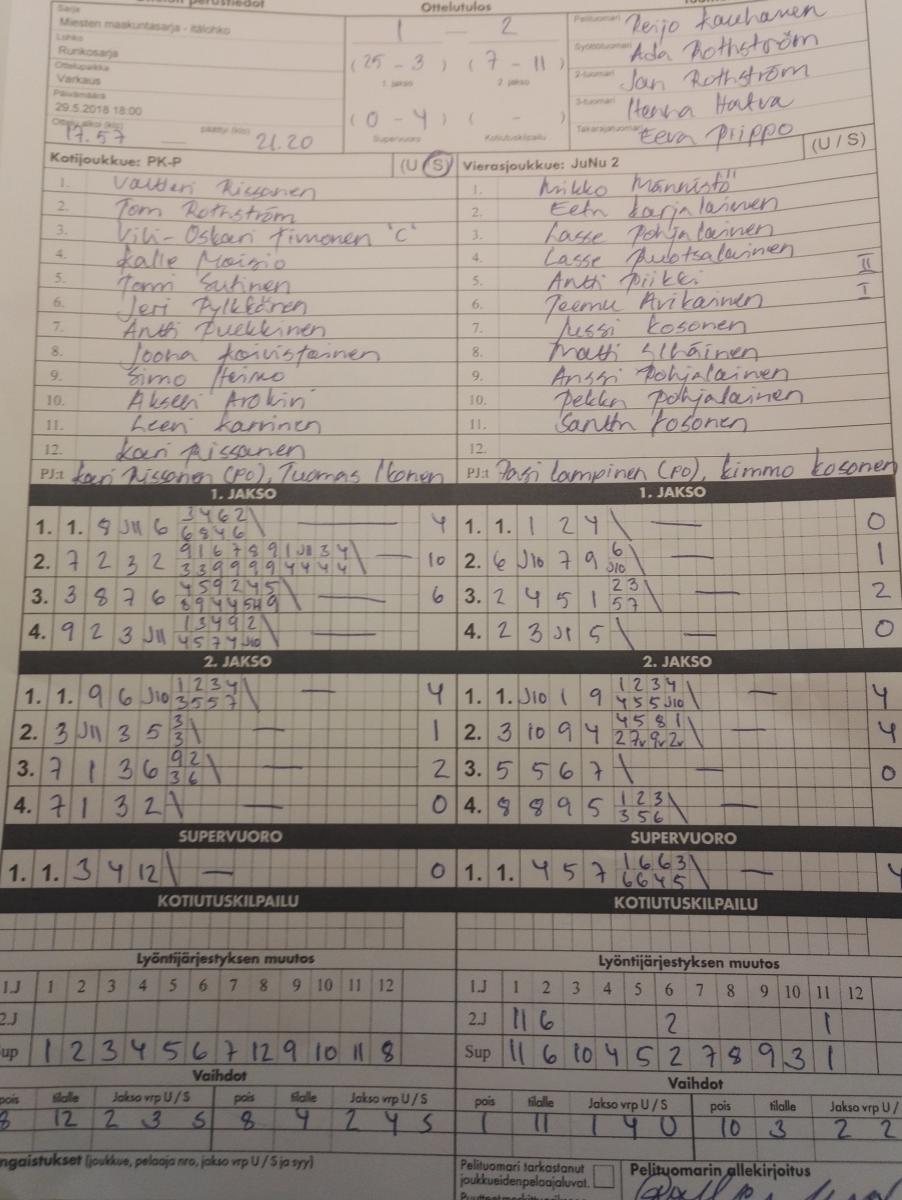 Ottelutulos
Sarja
Miesten maakuntasarja - Itälohko
Lohko
Runkosarja
Ottelupaikka
Varkaus
Päivämäärä
29.5.2018 18:00
Ottelu alkoi (klo) 17.57 päättyi (klo) 21.20
1 — 2
(25 - 3) (7 - 11)
1. jakso 2. jakso
(0 - 4) ( - )
Supervuoro Kotiutuskilpailu
Pelituomari Reijo Kauhanen
Syöttötuomari Ada Rothström
2-tuomari Jan Rothström
3-tuomari Henna Hatva
Takarajatuomari Eeva Piippo
Kotijoukkue: PK-P (U / S)
1. Valtteri Rissanen
2. Tom Rothström
3. Vili-Oskari Timonen "C"
4. Kalle Moisio
5. Tomi Sutinen
6. Jeri Pylkkänen
7. Antti Puekkinen
8. Joona Koivistoinen
9. Simo Heimo
10. Akseli
11. Leevi Karvinen
12. Kari Rissanen
PJ:t Kari Rissanen (PO), Tuomas Ikonen
Vierasjoukkue: JuNu 2 (U / S)
1. Mikko Männistö
2. Eetu Karjalainen
3. Lasse Pohjalainen
4. Lasse Ruotsalainen
5. Antti Piikki II
6. Teemu Avikainen I
7. Jussi Kosonen
8. Matti
9. Anssi Pohjalainen
10. Pekka Pohjalainen
11. Santtu Kosonen
12.
PJ:t Pasi Lampinen (PO), Kimmo Kosonen
1. JAKSO
1. 1. 8 J11 6 3 4 6 2 \ — 4
6 8 4 6
2. 7 2 3 2 9 1 6 7 8 9 1 J11 3 4 \ — 10
3 3 9 9 9 9 4 4 4 4
3. 3 8 7 6 4 5 9 2 4 5 \ — 6
4. 9 2 3 J11 1 3 4 9 2 \ —
4 5 7 4 J10
1. JAKSO
1. 1. 1 2 4 \ — 0
2. 6 J10 7 9 6 \ — 1
J10
3. 2 4 5 1 2 3 \ — 2
5 7
4. 2 3 J1 5 \ — 0
2. JAKSO
1. 1. 9 6 J10 1 2 3 4 \ — 4
3 5 5 7
2. 3 J11 3 5 3 \ — 1
3
3. 7 1 3 6 9 2 \ — 2
3 6
4. 7 1 3 2 \ — 0
2. JAKSO
1. 1. J10 1 9 1 2 3 4 \ — 4
4 5 5 J10
2. 3 10 9 4 4 5 8 1 \ — 4
2 7v 9v 2v
3. 5 5 6 7 \ — 0
4. 8 8 9 5 1 2 3 \ —
3 5 6
SUPERVUORO
1. 1. 3 4 12 \ — 0
SUPERVUORO
1. 1. 4 5 7 1 6 6 3 \ — 4
6 6 4 5
KOTIUTUSKILPAILU
KOTIUTUSKILPAILU
Lyöntijärjestyksen muutos
1.J 1 2 3 4 5 6 7 8 9 10 11 12
2.J
up 1 2 3 4 5 6 7 12 9 10 11 8
Lyöntijärjestyksen muutos
1.J 1 2 3 4 5 6 7 8 9 10 11 12
2.J 11 6 2 1
Sup 11 6 10 4 5 2 7 8 9 3 1
Vaihdot
pois tilalle Jakso vrp U / S pois tilalle Jakso vrp U / S
8 12 2 3 S 8 4 2 4 S
Vaihdot
pois tilalle Jakso vrp U / S pois tilalle Jakso vrp U /
1 11 1 4 U 10 3 2 2
ngaistukset (joukkue, pelaaja nro, jakso vrp U / S ja syy)
Pelituomari tarkastanut
joukkueidenpelaajaluvat.
Pelituomarin allekirjoitus